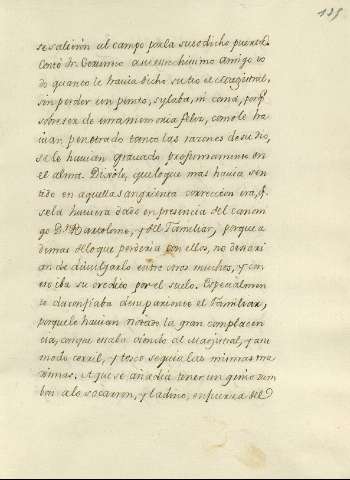 135
se salieron al campo por la susodicha puerta.
Contó Dn. Gerundio a su
amigo to
do quanto le havia dicho su tio el Magistral,
sin perder un punto, sylaba, ni coma, porq.
sobre ser de una memoria feliz, como le ha
vian penetrado tanto las razones de su tio,
se le havian gravado profundamente en
el alma. Dixole, que lo que mas havia sen
tido en aquella sangrienta correccion era, q.
se la huviera dado en presencia del canoni
go Dn. Bartolome, y del Familiar, porque a
demas de lo que perderia con ellos, no dexari
an de divulgarlo entre otros muchos, y con
eso iba su credito por el suelo. Especialmen
te desconfiaba
el Familiar,
porque le havian notado la gran complacen
cia, con que estaba oiendo al Magistral, y a su
modo cerril, y tosco seguia las mismas ma
ximas. A que se añadia tener un genio zum
bon a lo socarron, y ladino, en fuerza del